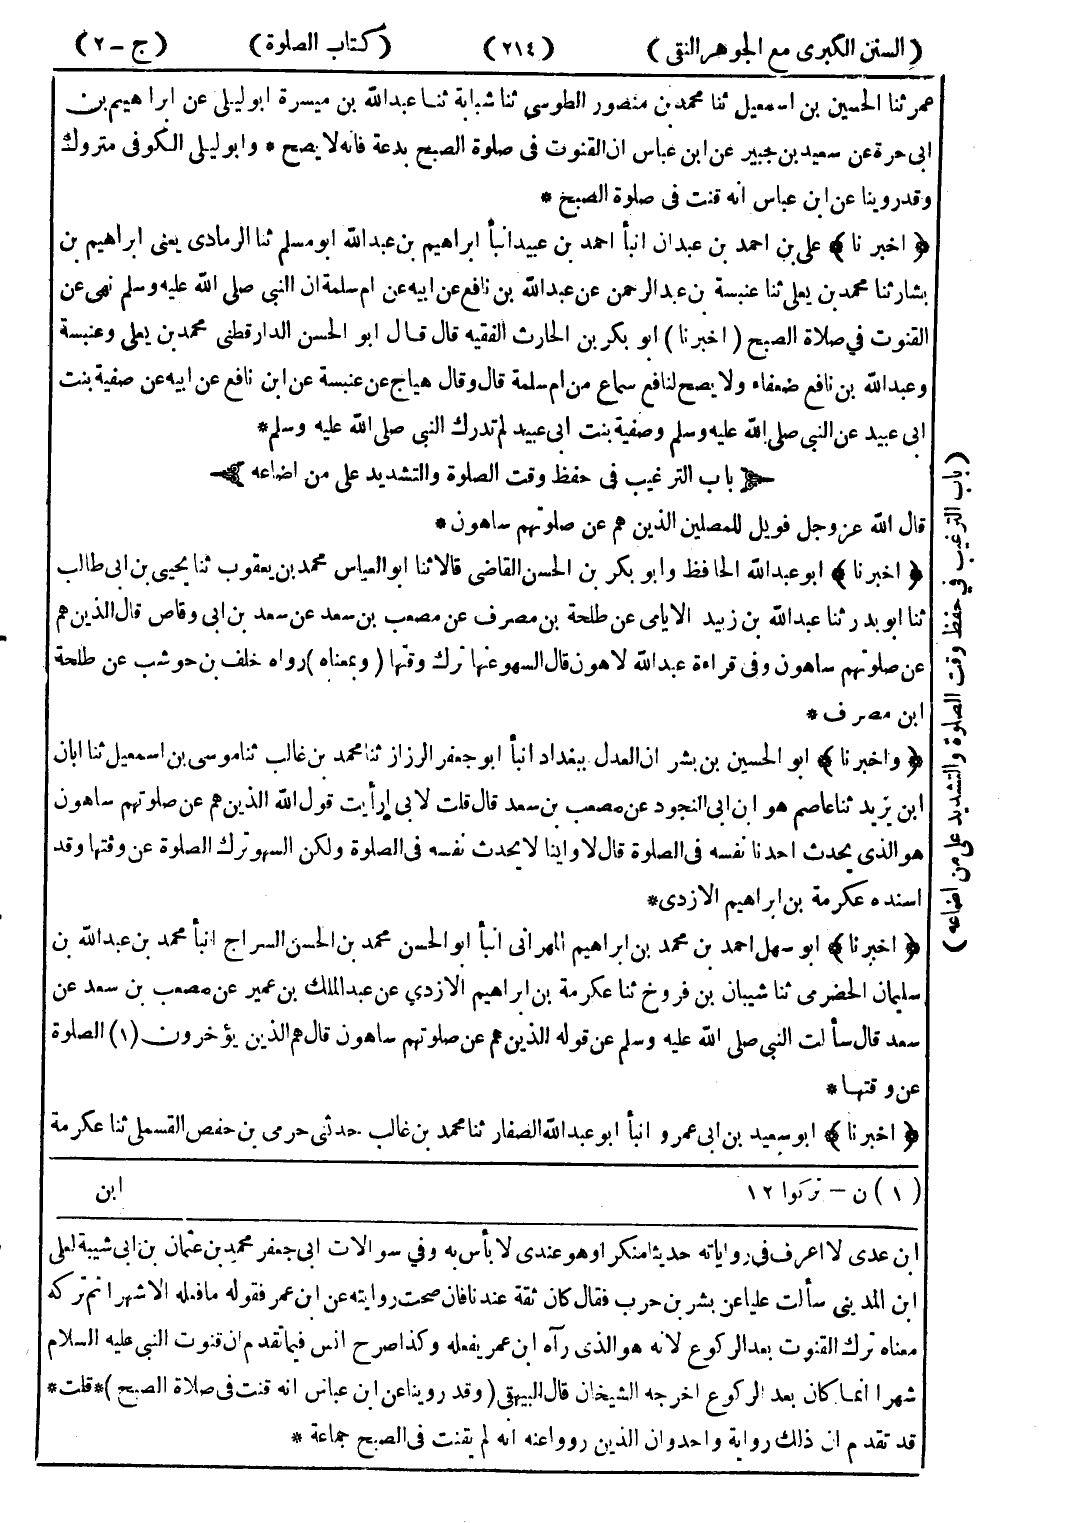 (السنن الكبرى مع الجوهر النقى) (٢١٤) (كتاب الصلوة) (ج - ٢)
عمر ثنا الحسين بن اسمعيل ثنا محمد بن منصور الطوسى ثنا شبابة ثنا عبدالله بن ميسرة ابو ليلى عن ابراهيم بن
ابى حرة عن سعيد بن جبير عن ابن عباس ان القنوت فى صلوة الصبح بدعة فانه لا يصح * وابو ليلى الكوفى متروك
وقد روينا عن ابن عباس انه قنت فى صلوة الصبح *
﴿ اخبرنا ﴾ على بن احمد بن عبدان انبأ احمد بن عبيد انبأ ابراهيم بن عبدالله ابو مسلم ثنا الرمادى يعنى ابراهيم بن
بشار ثنا محمد بن يعلى ثنا عنبسة بن عبدالرحمن عن عبدالله بن نافع عن ابيه عن ام سلمة ان النبى صلى الله عليه وسلم نهى عن
القنوت في صلاة الصبح ( اخبرنا ) ابو بكر بن الحارث الفقيه قال قال ابو الحسن الدارقطنى محمد بن يعلى وعنبسة
وعبدالله بن نافع ضعفاء ولا يصح لنافع سماع من ام سلمة قال وقال هياج عن عنبسة عن ابن نافع عن ابيه عن صفية بنت
ابى عبيد عن النبى صلى الله عليه وسلم وصفية بنت ابى عبيد لم تدرك النبى صلى الله عليه وسلم *
باب الترغيب فى حفظ وقت الصلوة والتشديد على من اضاعه
قال الله عزوجل فويل للمصلين الذين هم عن صلوتهم ساهون *
﴿ اخبرنا ﴾ ابو عبدالله الحافظ وابو بكر بن الحسن القاضى قالا ثنا ابو العباس محمد بن يعقوب ثنا يحيى بن ابى طالب
ثنا ابو بدر ثنا عبدالله بن زبيد الايامى عن طلحة بن مصرف عن مصعب بن سعد عن سعد بن ابى وقاص قال الذين هم
عن صلوتهم ساهون وفى قراءة عبدالله لاهون قال السهو عنها ترك وقتها ( وبمعناه ) رواه خلف بن حوشب عن طلحة
ابن مصرف *
﴿ واخبرنا ﴾ ابو الحسين بن بشران العدل ببغداد انبأ ابو جعفر الرزاز ثنا محمد بن غالب ثنا موسى بن اسمعيل ثنا ابان
ابن يزيد ثنا عاصم هو ابن ابى النجود عن مصعب بن سعد قال قلت لابى أرأيت قول الله الذين هم عن صلوتهم ساهون
هو الذى يحدث احدنا نفسه فى الصلوة قال لا واينا لا يحدث نفسه فى الصلوة ولكن السهو ترك الصلوة عن وقتها وقد
اسنده عكرمة بن ابراهيم الازدى *
﴿ اخبرنا ﴾ ابو سهل احمد بن محمد بن ابراهيم المهرانى انبأ ابو الحسن محمد بن الحسن السراج انبأ محمد بن عبدالله بن
سليمان الحضرمى ثنا شيبان بن فروخ ثنا عكرمة بن ابراهيم الازدي عن عبدالملك بن عمير عن مصعب بن سعد عن
سعد قال سألت النبى صلى الله عليه وسلم عن قوله الذين هم عن صلوتهم ساهون قال هم الذين يؤخرون (١) الصلوة
عن وقتها *
﴿ اخبرنا ﴾ ابو سعيد بن ابى عمرو انبأ ابو عبدالله الصفار ثنا محمد بن غالب حدثنى حرمى بن حفص القسملى ثنا عكرمة
(١) ن - تركوا ١٢ ابن
ابن عدى لا اعرف فى رواياته حديثا منكرا وهو عندى لا بأس به وفي سوالات ابى جعفر محمد بن عثمان بن ابى شيبة لعلى
ابن المديني سألت عليا عن بشر بن حرب فقال كان ثقة عندنا فان صحت روايته عن ابن عمر فقوله ما فعله الا شهرا ثم تركه
معناه ترك القنوت بعد الركوع لانه هو الذى رآه ابن عمر يفعله وكذا صرح انس فيما تقدم ان قنوت النبى عليه السلام
شهرا انما كان بعد الركوع اخرجه الشيخان قال البيهقى ( وقد روينا عن ابن عباس انه قنت فى صلاة الصبح ) * قلت *
قد تقدم ان ذلك رواية واحد وان الذين رووا عنه انه لم يقنت فى الصبح جماعة *
(باب الترغيب في حفظ وقت الصلوة والتشديد على من اضاعه)